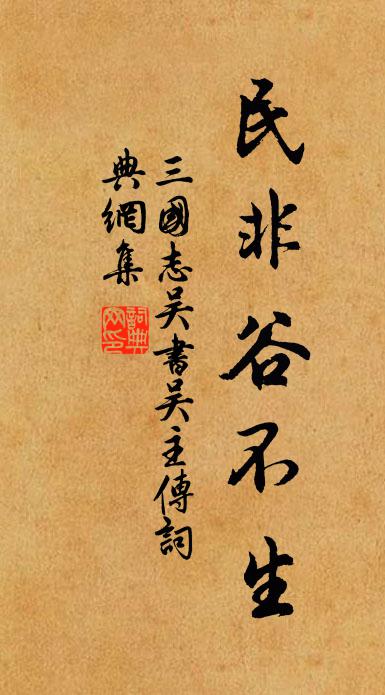 民非谷不生
三國志吴書吴主傳詞
典網集
詞典
网印